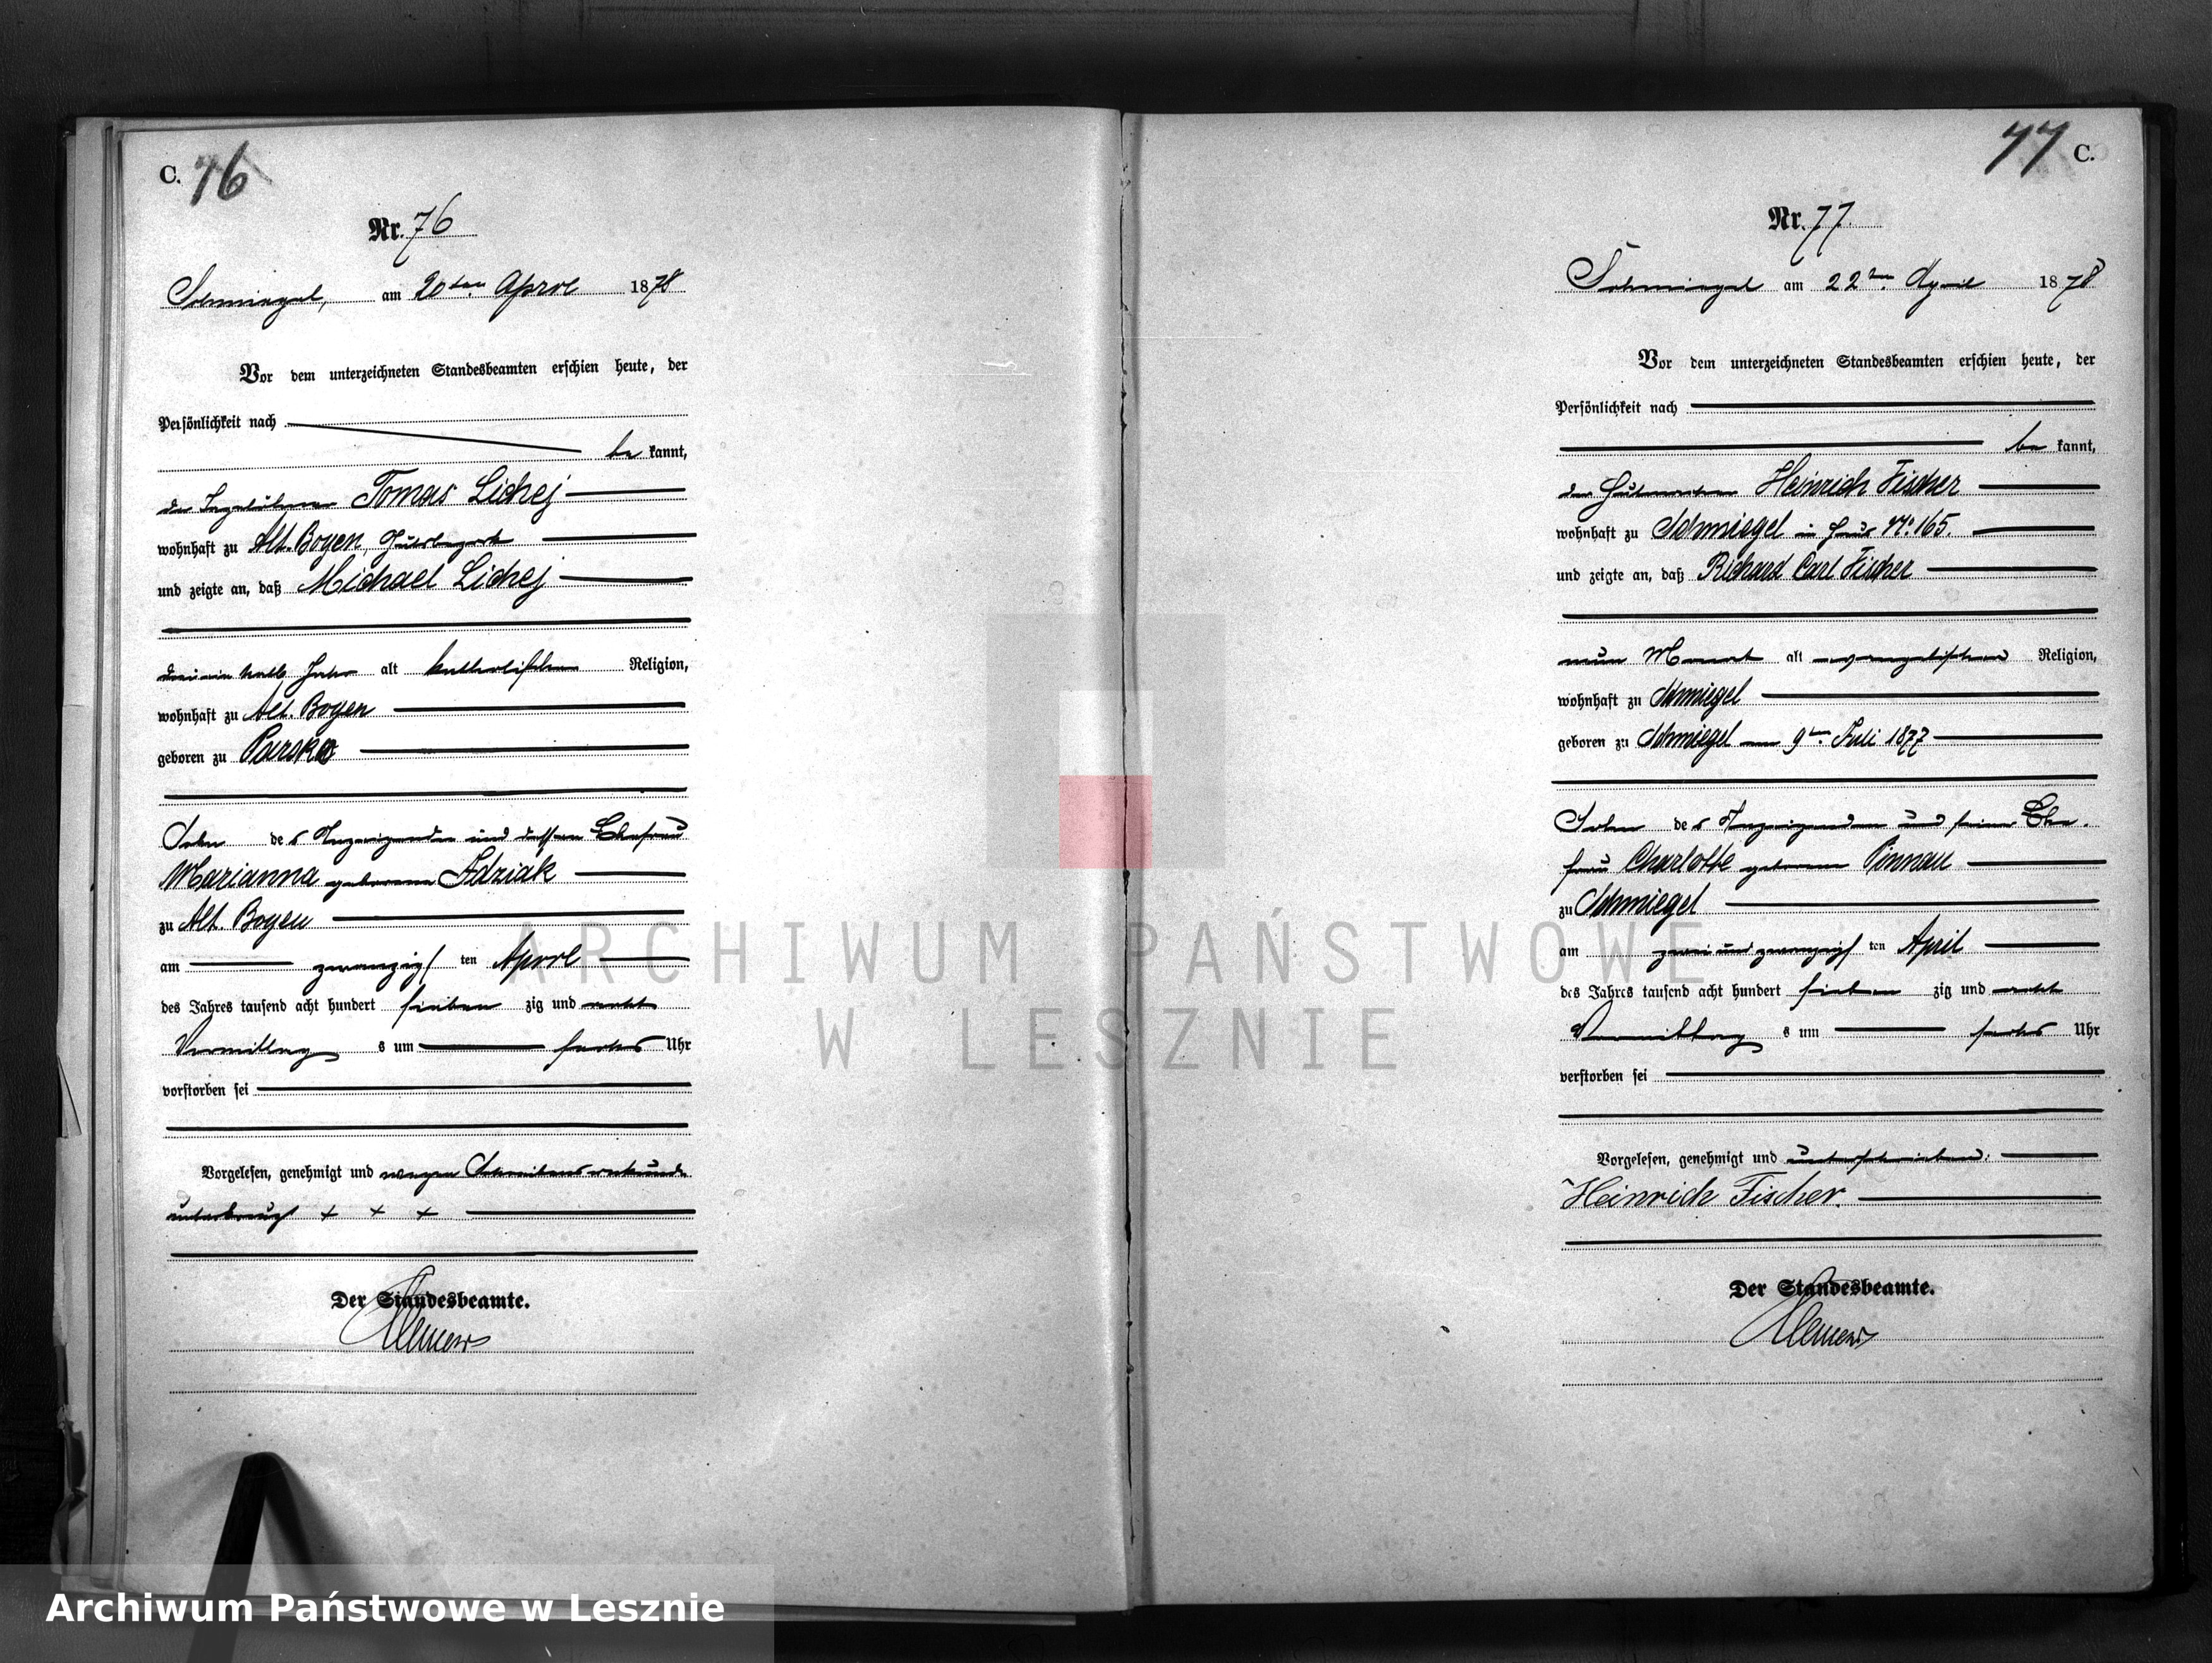 C. 76
Nr. 76
Schmiegel, am 20ten April 1878
Vor dem unterzeichneten Standesbeamten erschien heute, der
Persönlichkeit nach
be kannt,
der Tagelöhner Tomas Lichej
wohnhaft zu Alt. Boyen, Gutsbezirk
und zeigte an, daß Michael Lichej
drei ein halb Jahr alt katholischer Religion,
wohnhaft zu Alt. Boyen
geboren zu Parsko
Sohn des Anzeigenden und dessen Ehefrau
Marianna geborene Adziak
zu Alt. Boyen
am zwanzigsten April
des Jahres tausend acht hundert sieben zig und acht
Vormittag s um sechs Uhr
vorstorben sei
Vorgelesen, genehmigt und wegen Schreibensunkunde
unterkreuzt + + +
Der Standesbeamte.
77 C.
Nr. 77.
Schmiegel am 22ten April 1878
Vor dem unterzeichneten Standesbeamten erschien heute, der
Persönlichkeit nach
be kannt,
der Heinrich Fischer
wohnhaft zu Schmiegel in Haus No. 165.
und zeigte an, daß Richard Carl Fischer
neun Monat alt evangelischer Religion,
wohnhaft zu Schmiegel
geboren zu Schmiegel am 9ten Juli 1877
Sohn des Anzeigenden und seiner Ehe-
frau Charlotte geborene Pinnau
zu Schmiegel
am zwei und zwanzigsten April
des Jahres tausend acht hundert sieben zig und acht
Vormittag s um sechs Uhr
verstorben sei
Vorgelesen, genehmigt und unterschrieben.
Heinrich Fischer.
Der Standesbeamte.
ARCHIWUM PAŃSTWOWE
W LESZNIE
Archiwum Państwowe w Lesznie